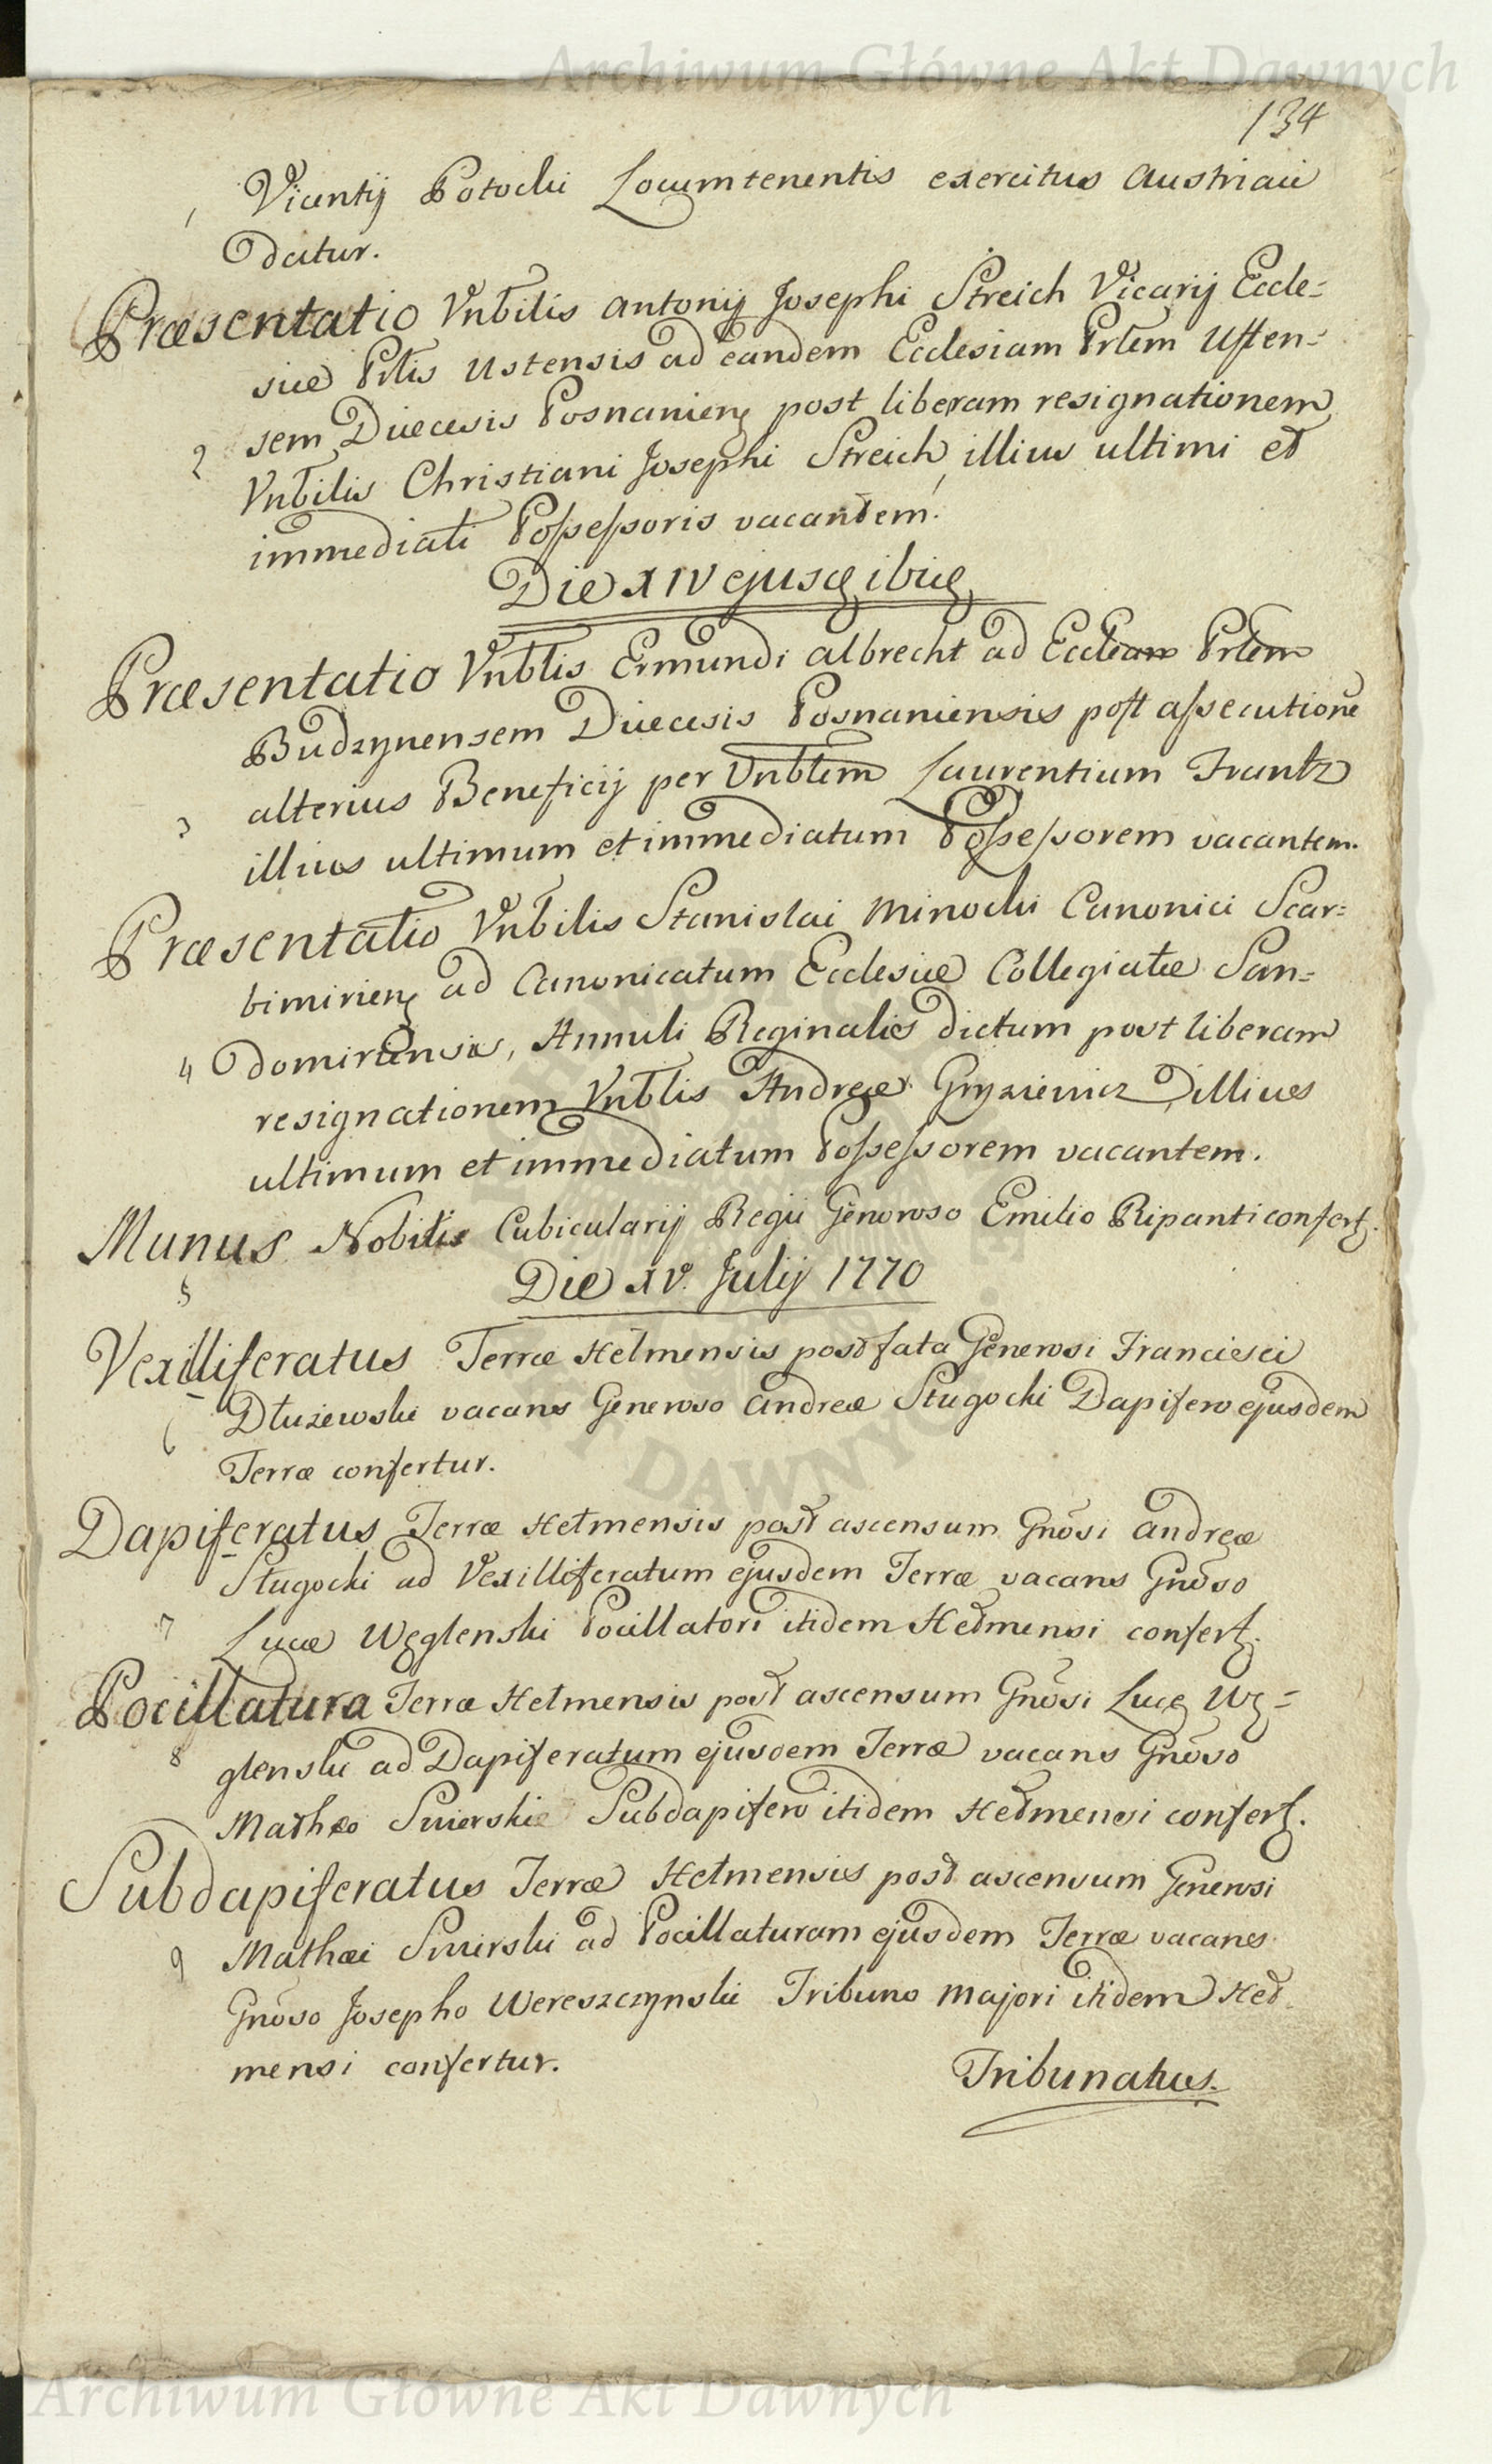 Archiwum Główne Akt Dawnych
134
1 Vicentij Potocki Locumtenentis exercitus Austriaci
datur.
Præsentatio Vnbilis Antonij Josephi Streich Vicarij Eccle=
siæ Prlis Ustensis ad eandem Ecclesiam Prlem Usten=
2 sem Diæcesis Posnanien post liberam resignationem
Vnbilis Christiani Josephi Streich, illius ultimi et
immediati Possessoris vacantem.
Die XIV ejusq ibiq
Præsentatio Vnblis Ermundi Albrecht ad Eccleam Prlem
Budzynensem Diæcesis Posnaniensis post assecutionē
3 alterius Beneficij per Vnblem Laurentium Frantz
illius ultimum et immediatum Possessorem vacantem.
Præsentatio Vnbilis Stanislai Minocki Canonici Scar=
bimirien ad Canonicatum Ecclesiæ Collegiatæ San=
4 domiriensis, Annuli Reginalis dictum post liberam
resignationem Vnblis Andreæ Gryziewicz illius
ultimum et immediatum Possessorem vacantem.
Munus Nobilis Cubicularij Regii Generoso Emilio Ripanti confert.
5 Die XV. Julij 1770
Vexilliferatus Terræ Hełmensis post fata Generosi Francisci
6 Dłużewski vacans Generoso Andreæ Sługocki Dapifero ejusdem
Terræ confertur.
Dapiferatus Terræ Hełmensis post ascensum Gnōsi Andreæ
Sługocki ad Vexilliferatum ejusdem Terræ vacans Gnōso
7 Lucæ Węglenski Pocillatori itidem Hełmensi confert.
Pocillatura Terræ Hełmensis post ascensum Gnōsi Lucę Wę=
8 glenski ad Dapiferatum ejusdem Terræ vacans Gnōso
Mathæo Smierski Subdapifero itidem Hełmensi confert.
Subdapiferatus Terræ Hełmensis post ascensum Generosi
9 Mathæi Smierski ad Pocillaturam ejusdem Terræ vacans
Gnōso Josepho Wereszczynski Tribuno Majori itidem Heł
mensi confertur.
Tribunatus.
Archiwum Główne Akt Dawnych